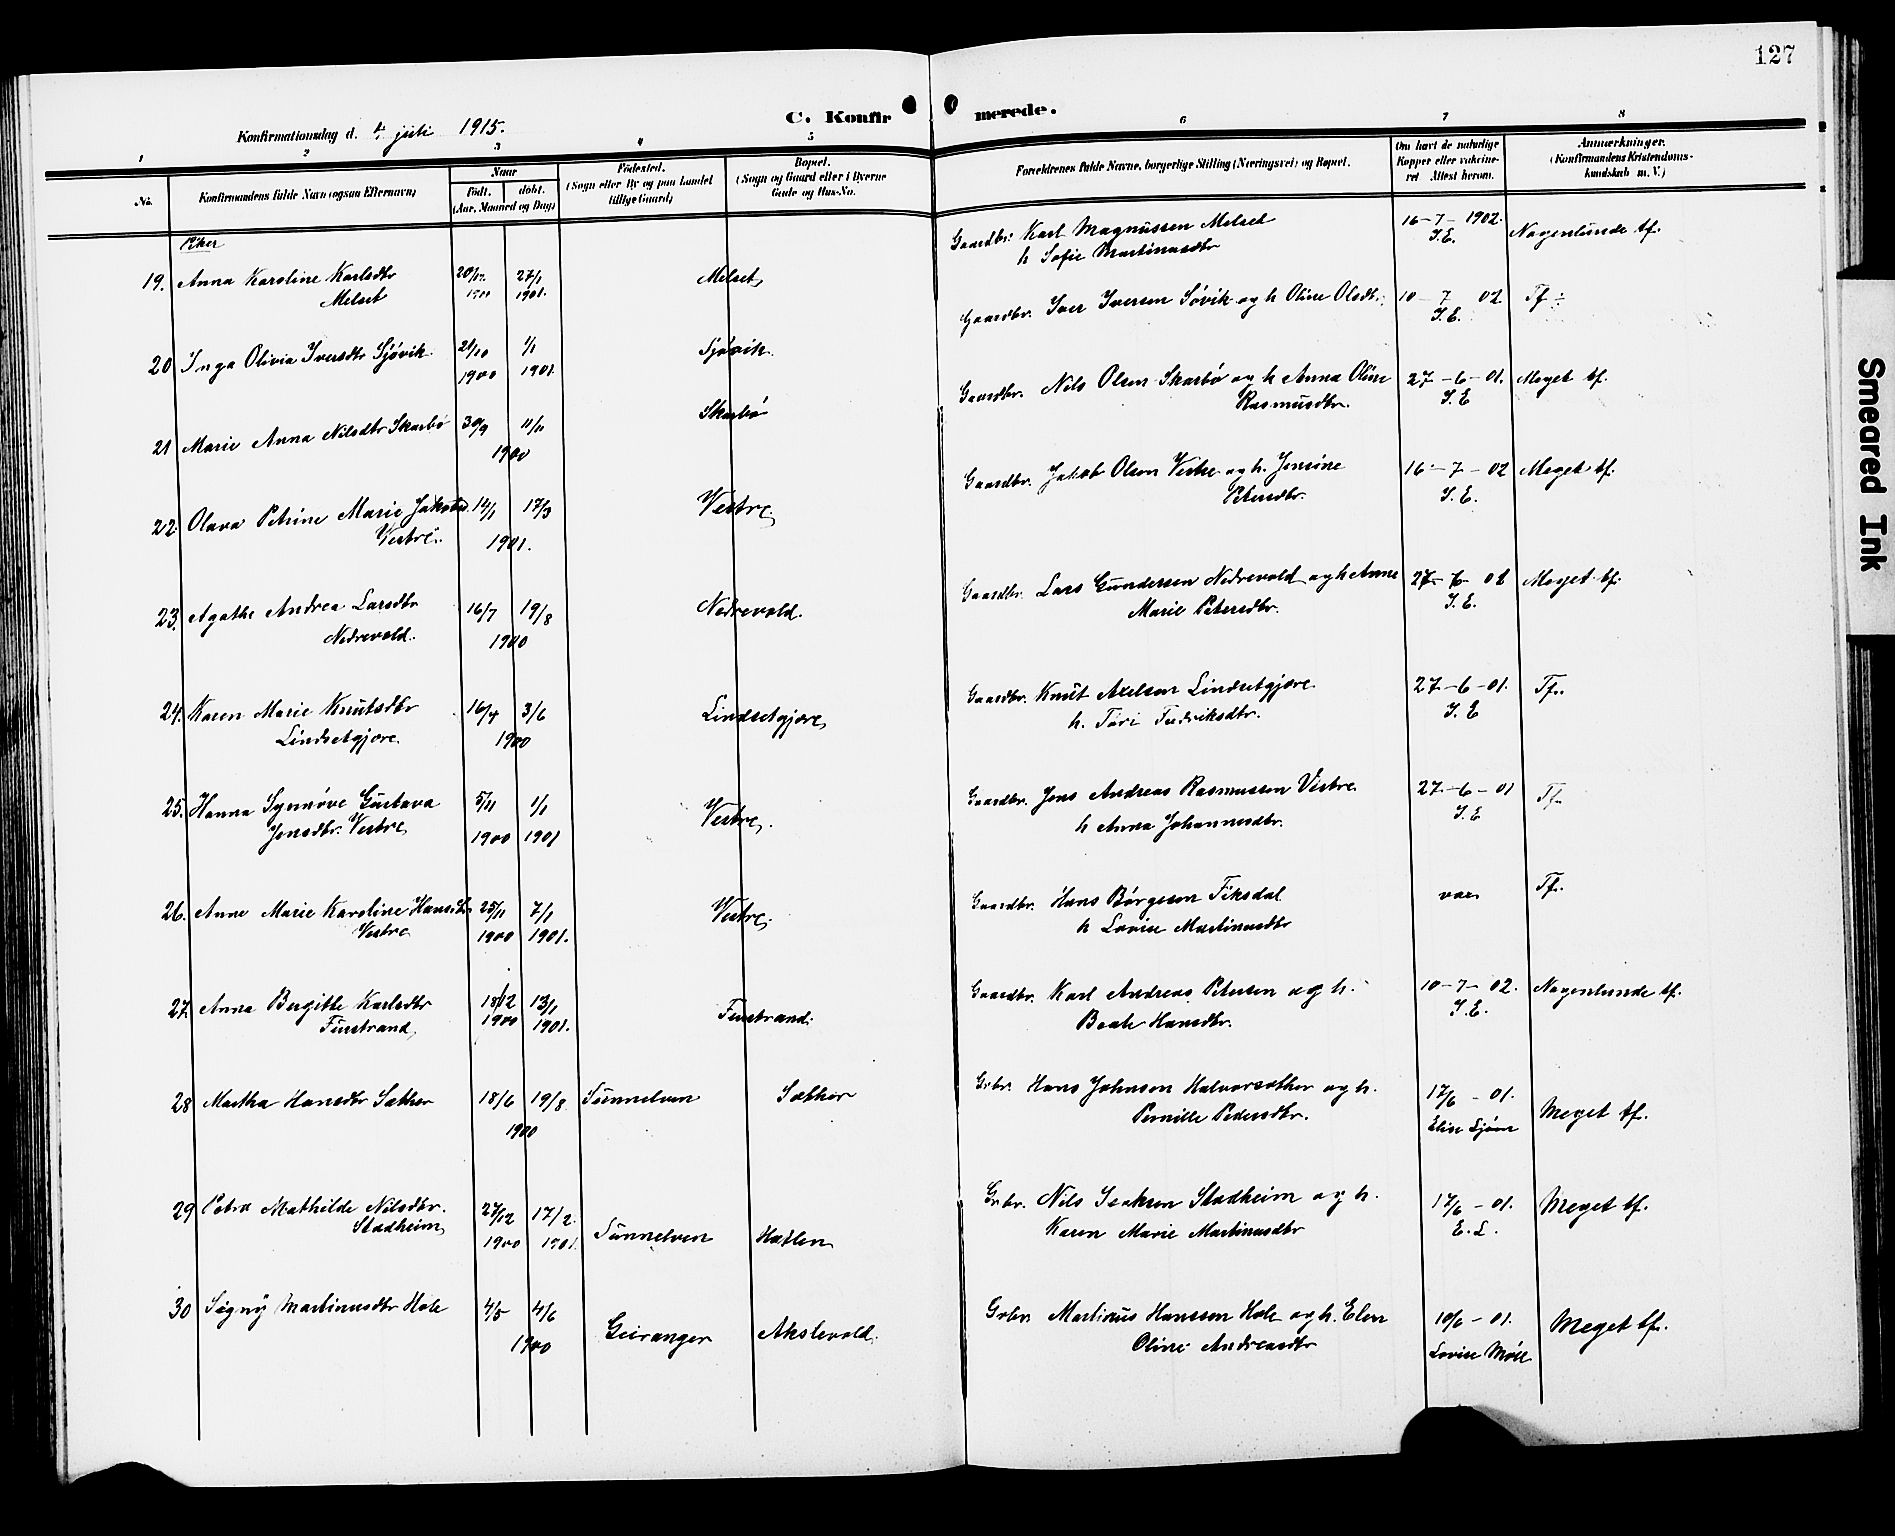 127
C. Konfirmerede.
Konfirmationsdag d. 4 juli 1915.
1 2 3 4 5 6 7 8
No.
Konfirmandens fulde Navn (ogsaa Efternavn)
Naar
født. døbt.
(Aar, Maaned og Dag)
Fødested.
(Sogn eller By og paa Landet
tillige Gaard)
Bopæl.
(Sogn og Gaard eller i Byerne
Gade og Hus-No.
Forældrenes fulde Navne, borgerlige Stilling (Næringsvei) og Bopæl.
Om havt de naturlige
Kopper eller vaksine-
ret Attest herom.
Anmærkninger.
(Konfirmandens Kristendoms-
kundskab m. V.)
Piker
19. Anna Karoline Karlsdtr 20/12 27/1 Melset
Melset 1900 1901.
Gaardbr. Karl Magnussen Melset 16-7-1902. Nogenlunde tf.
h Sofie Martinusdtr I.E.
20 Inga Olivia Iversdtr Sjøvik 21/10 1/1 Sjøvik
1900 1901.
Gaardbr. Iver Iversen Søvik og h Oline Olsdtr. 10-7 02 Tf
I.E.
21 Marie Anna Nilsdtr Skarbø 30/9 11/11 Skarbø
1900
Gaardbr. Nils Olsen Skarbø og h Anna Oline 27-6-01. Meget tf.
Rasmusdtr. I.E
22. Olava Petrine Marie Jakobsd. 14/1 17/3 Vestre
Vestre. 1901.
Gaardbr. Jakob Olsen Vestre og h. Jensine 16-7-02 Meget tf.
Petersdtr. I.E.
23. Agathe Andrea Larsdtr 16/7 19/8 Nedrevold.
Nedrevold. 1900
Gaardbr. Lars Gundersen Nedrevold og h Anne Meget tf.
Marie Petersdtr. I.E.
24. Karen Marie Knutsdtr 16/4 3/6 Lindsetgjære
Lindsetgjære. 1900
Gaardbr. Knut Axelsen Lindsetgjære 27-6-01. Tf.
h. Turi Fredriksdtr. I.E
25. Hanna Synnøve Gustava 5/11 1/1 Vestre.
Jensdtr. Vestre 1900 1901
Gaardbr. Jens Andreas Rasmussen Vestre 27-6-01 Tf.
h Anna Johannesdtr. I.E
26. Anne Marie Karoline Hansdtr 25/11 7/1 Vestre.
Vestre 1900 1901.
Gaardbr. Hans Børgesen Fiksdal vac. Tf.
h Lovise Martinusdtr
27. Anna Bergitte Karlsdtr 18/12 13/1 Finstrand.
Finstrand 1900 1901.
Gaardbr. Karl Andreas Petersen og h. 10-7-02. Nogenlunde tf.
Beate Hansdtr. I.E.
28 Martha Hansdtr Sæther 18/6 19/8 Sunnelven Sæther
1900
Grbr. Hans Johnsen Halvorsæther og h. 17/6-01. Meget tf.
Pernille Pedersdtr. Elise
29 Petra Mathilde Nilsdtr. 27/12 17/2
Stadheim 1900 1901. Sunnelven Hatlen
Grbr. Nils Isaksen Stadheim og h. 17/6-01. Meget tf.
Karen Marie Martinusdtr E. L.
30 Signy Martinusdtr Hole 4/5 4/6
1900 Geiranger Akslevold.
Grbr. Martinus Hanssen Hole og h. Elen 10/6-01. Meget tf.
Oline Andreasdtr Lovise Møll
Smeared Ink